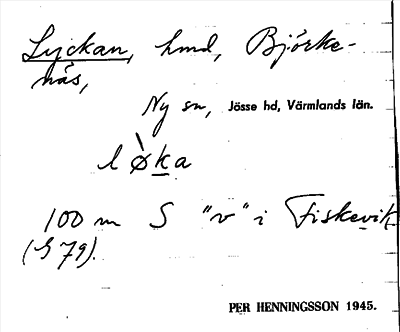 Lyckan, hmd, Björke-
näs,
Ny sn, Jösse hd, Värmlands län.
lø̀ka
100 m S "v" i Fiskevik
(G 79).
PER HENNINGSSON 1945.